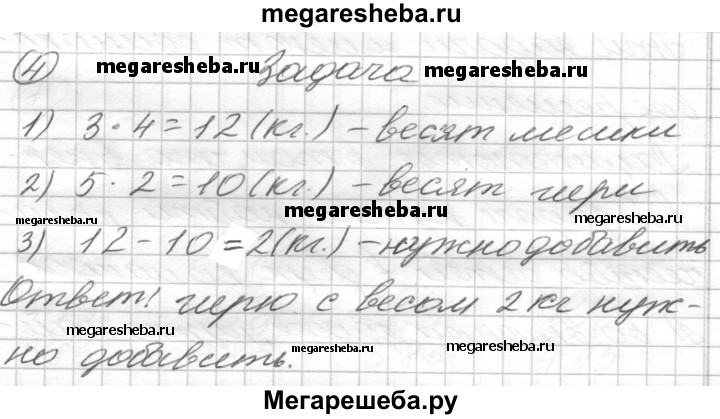 megaresheba.ru
④ megaresheba.ru Задача megaresheba.ru
1) 3 · 4 = 12 (кг.) – весят мешки
2) 5 · 2 = 10 (кг.) – весят гири
megaresheba.ru megaresheba.ru
3) 12 – 10 = 2 (кг.) – нужно добавить
Ответ: гирю с весом 2 кг нуж-
megaresheba.ru
но добавить. megaresheba.ru
Мегарешеба.ру